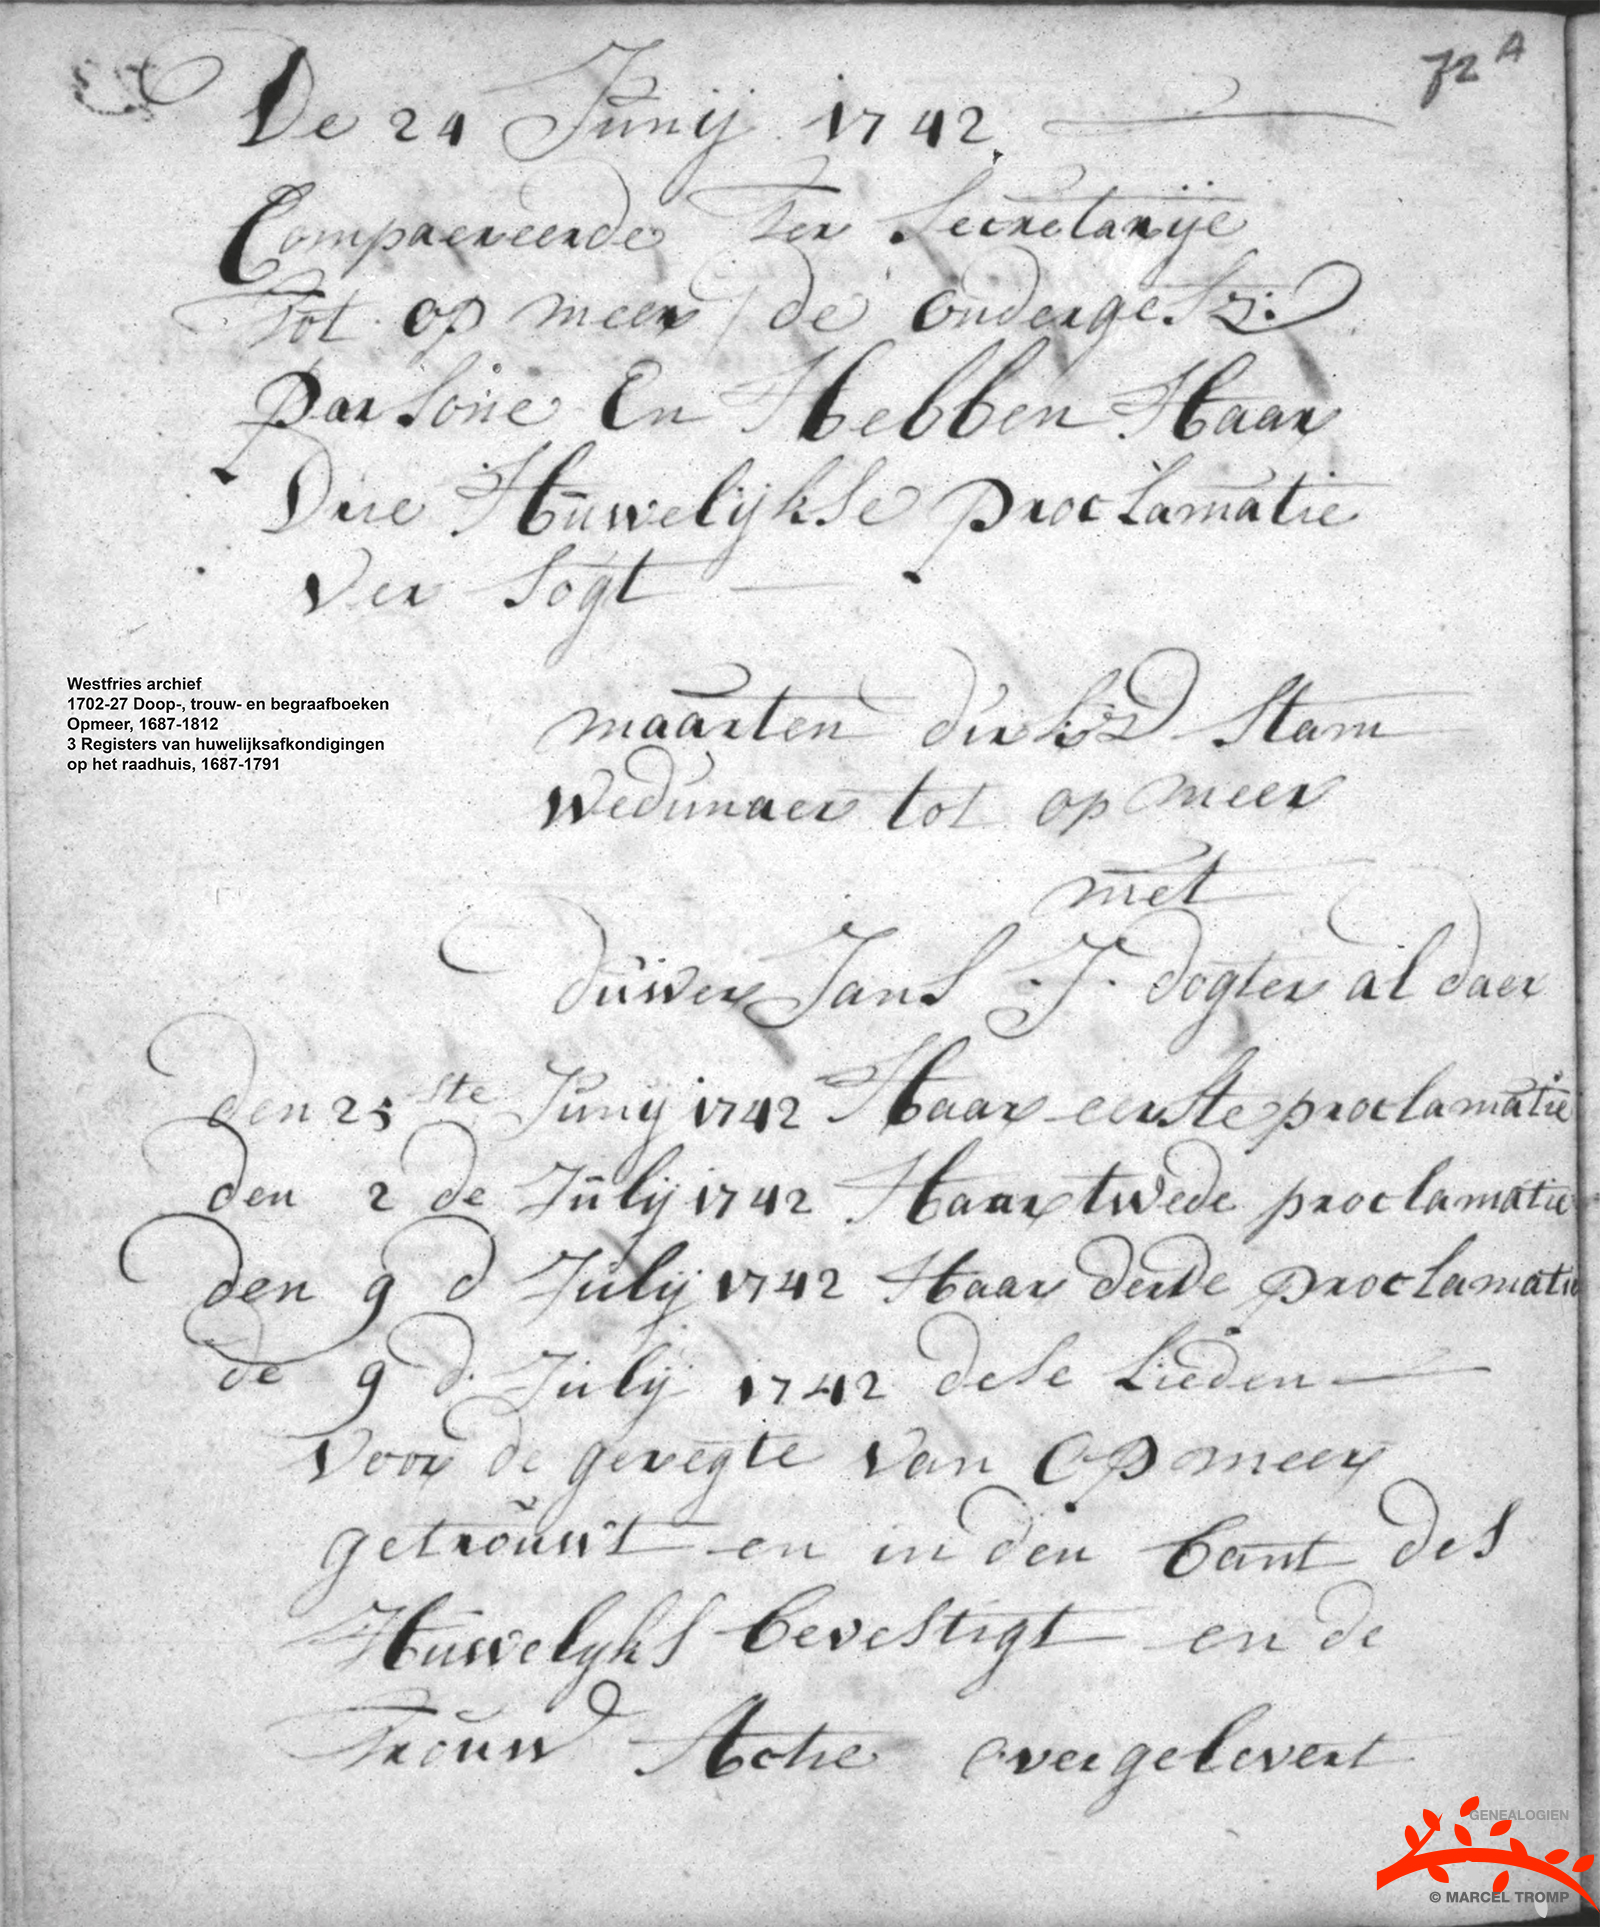 72 A
De 24 Junij 1742
Compaereerde Ter Secretarije
Tot op meer de ondergesz:
parsone En Hebben Haar
Drie Huwelijkse proclamatie
Ver Sogt
maarten dirksz Stam
Wedunaer tot op meer
met
duwer Jans J. dogter al daer
den 25 ste Junij 1742 Haar eerste proclamatie
den 2 de Julij 1742 Haar twede proclamatie
den 9 d Julij 1742 Haar derde proclamatie
de 9 d. Julij 1742 dese Lieden
Voor de geregte van Opmeer
getrouwt en in den bant des
Huwelyks bevestigt en de
Trouw Actie overgelevert
Westfries archief
1702-27 Doop-, trouw- en begraafboeken
Opmeer, 1687-1812
3 Registers van huwelijksafkondigingen
op het raadhuis, 1687-1791
GENEALOGIEN
© MARCEL TROMP